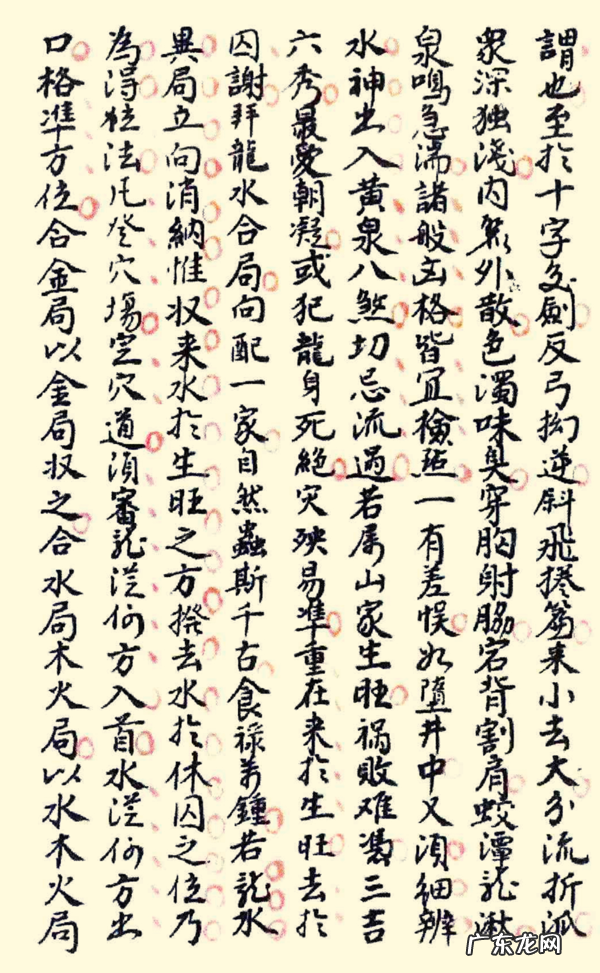 謂也至於十字交劍反弓拗逆斜飛捲簾来小去大分流折派
衆深独淺内聚外散色濁味臭穿胸射脇宕背割肩蛟潭龍湫
泉鳴急湍諸般凶格皆宜檢點一有差悞如墮井中又須細辨
水神出入黄泉八煞切忌流過若属山家生旺禍敗难憑三吉
六秀最愛朝凝或犯龍身死絕灾殃易準重在来於生旺去於
囚謝拜龍水合局向配一家自然螽斯千古食禄萬鍾若龍水
異局立向消納惟収来水於生旺之方撥去水於休囚之位乃
為得粧法凡登穴場定穴道須審龍從何方入首水從何方出
口格準方位合金局以金局収之合水局木火局以水木火局
广东龙网